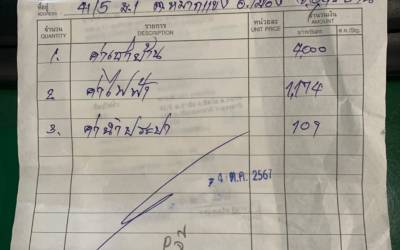 ที่อยู่ 41/5 ม.1 ต.หมากแข้ง อ.เมือง
ADDRESS
จำนวน รายการ หน่วยละ จำนวนเงิน
QUANTITY DESCRIPTION UNIT PRICE AMOUNT
1. ค่าเช่าบ้าน 4,000
2 ค่าไฟฟ้า 1,174
3. ค่าน้ำประปา 109
4 ต.ค. 2567